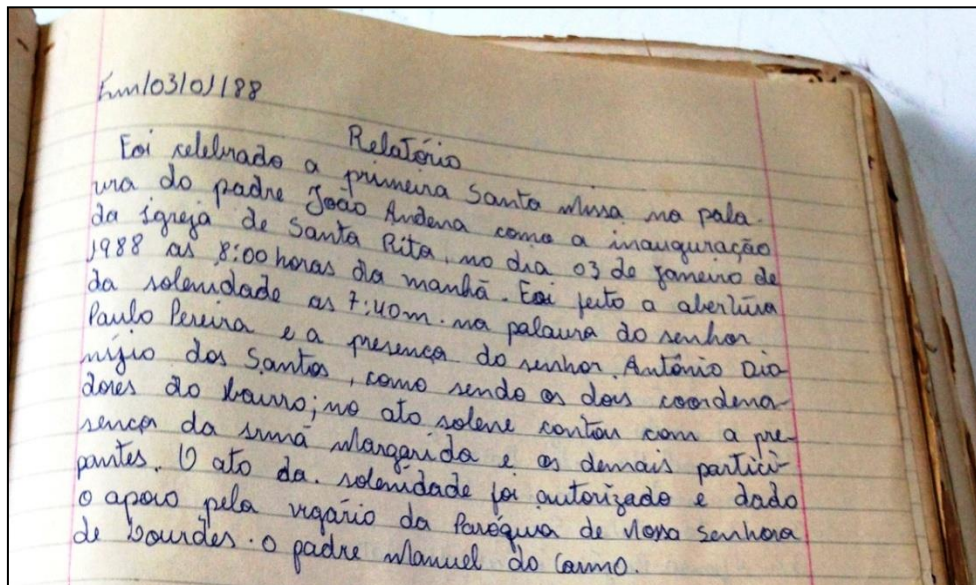 Em/03/01/88
Relatório
Foi celebrado a primeira Santa Missa na pala-
vra do padre João Andena como a inauguração
da igreja de Santa Rita, no dia 03 de janeiro de
1988 as 8:00 horas da manhã. Foi feito a abertura
da solenidade as 7:40m. na palavra do senhor
Paulo Pereira e a presença do senhor Antônio Dio-
nízio dos Santos, como sendo os dois coordena-
dores do bairro; no ato solene contou com a pre-
sença da irmã Margarida e os demais partici-
pantes. O ato da solenidade foi autorizado e dado
o apoio pelo vigário da Paróquia de Nossa Senhora
de Lourdes. o padre Manuel do Carmo.